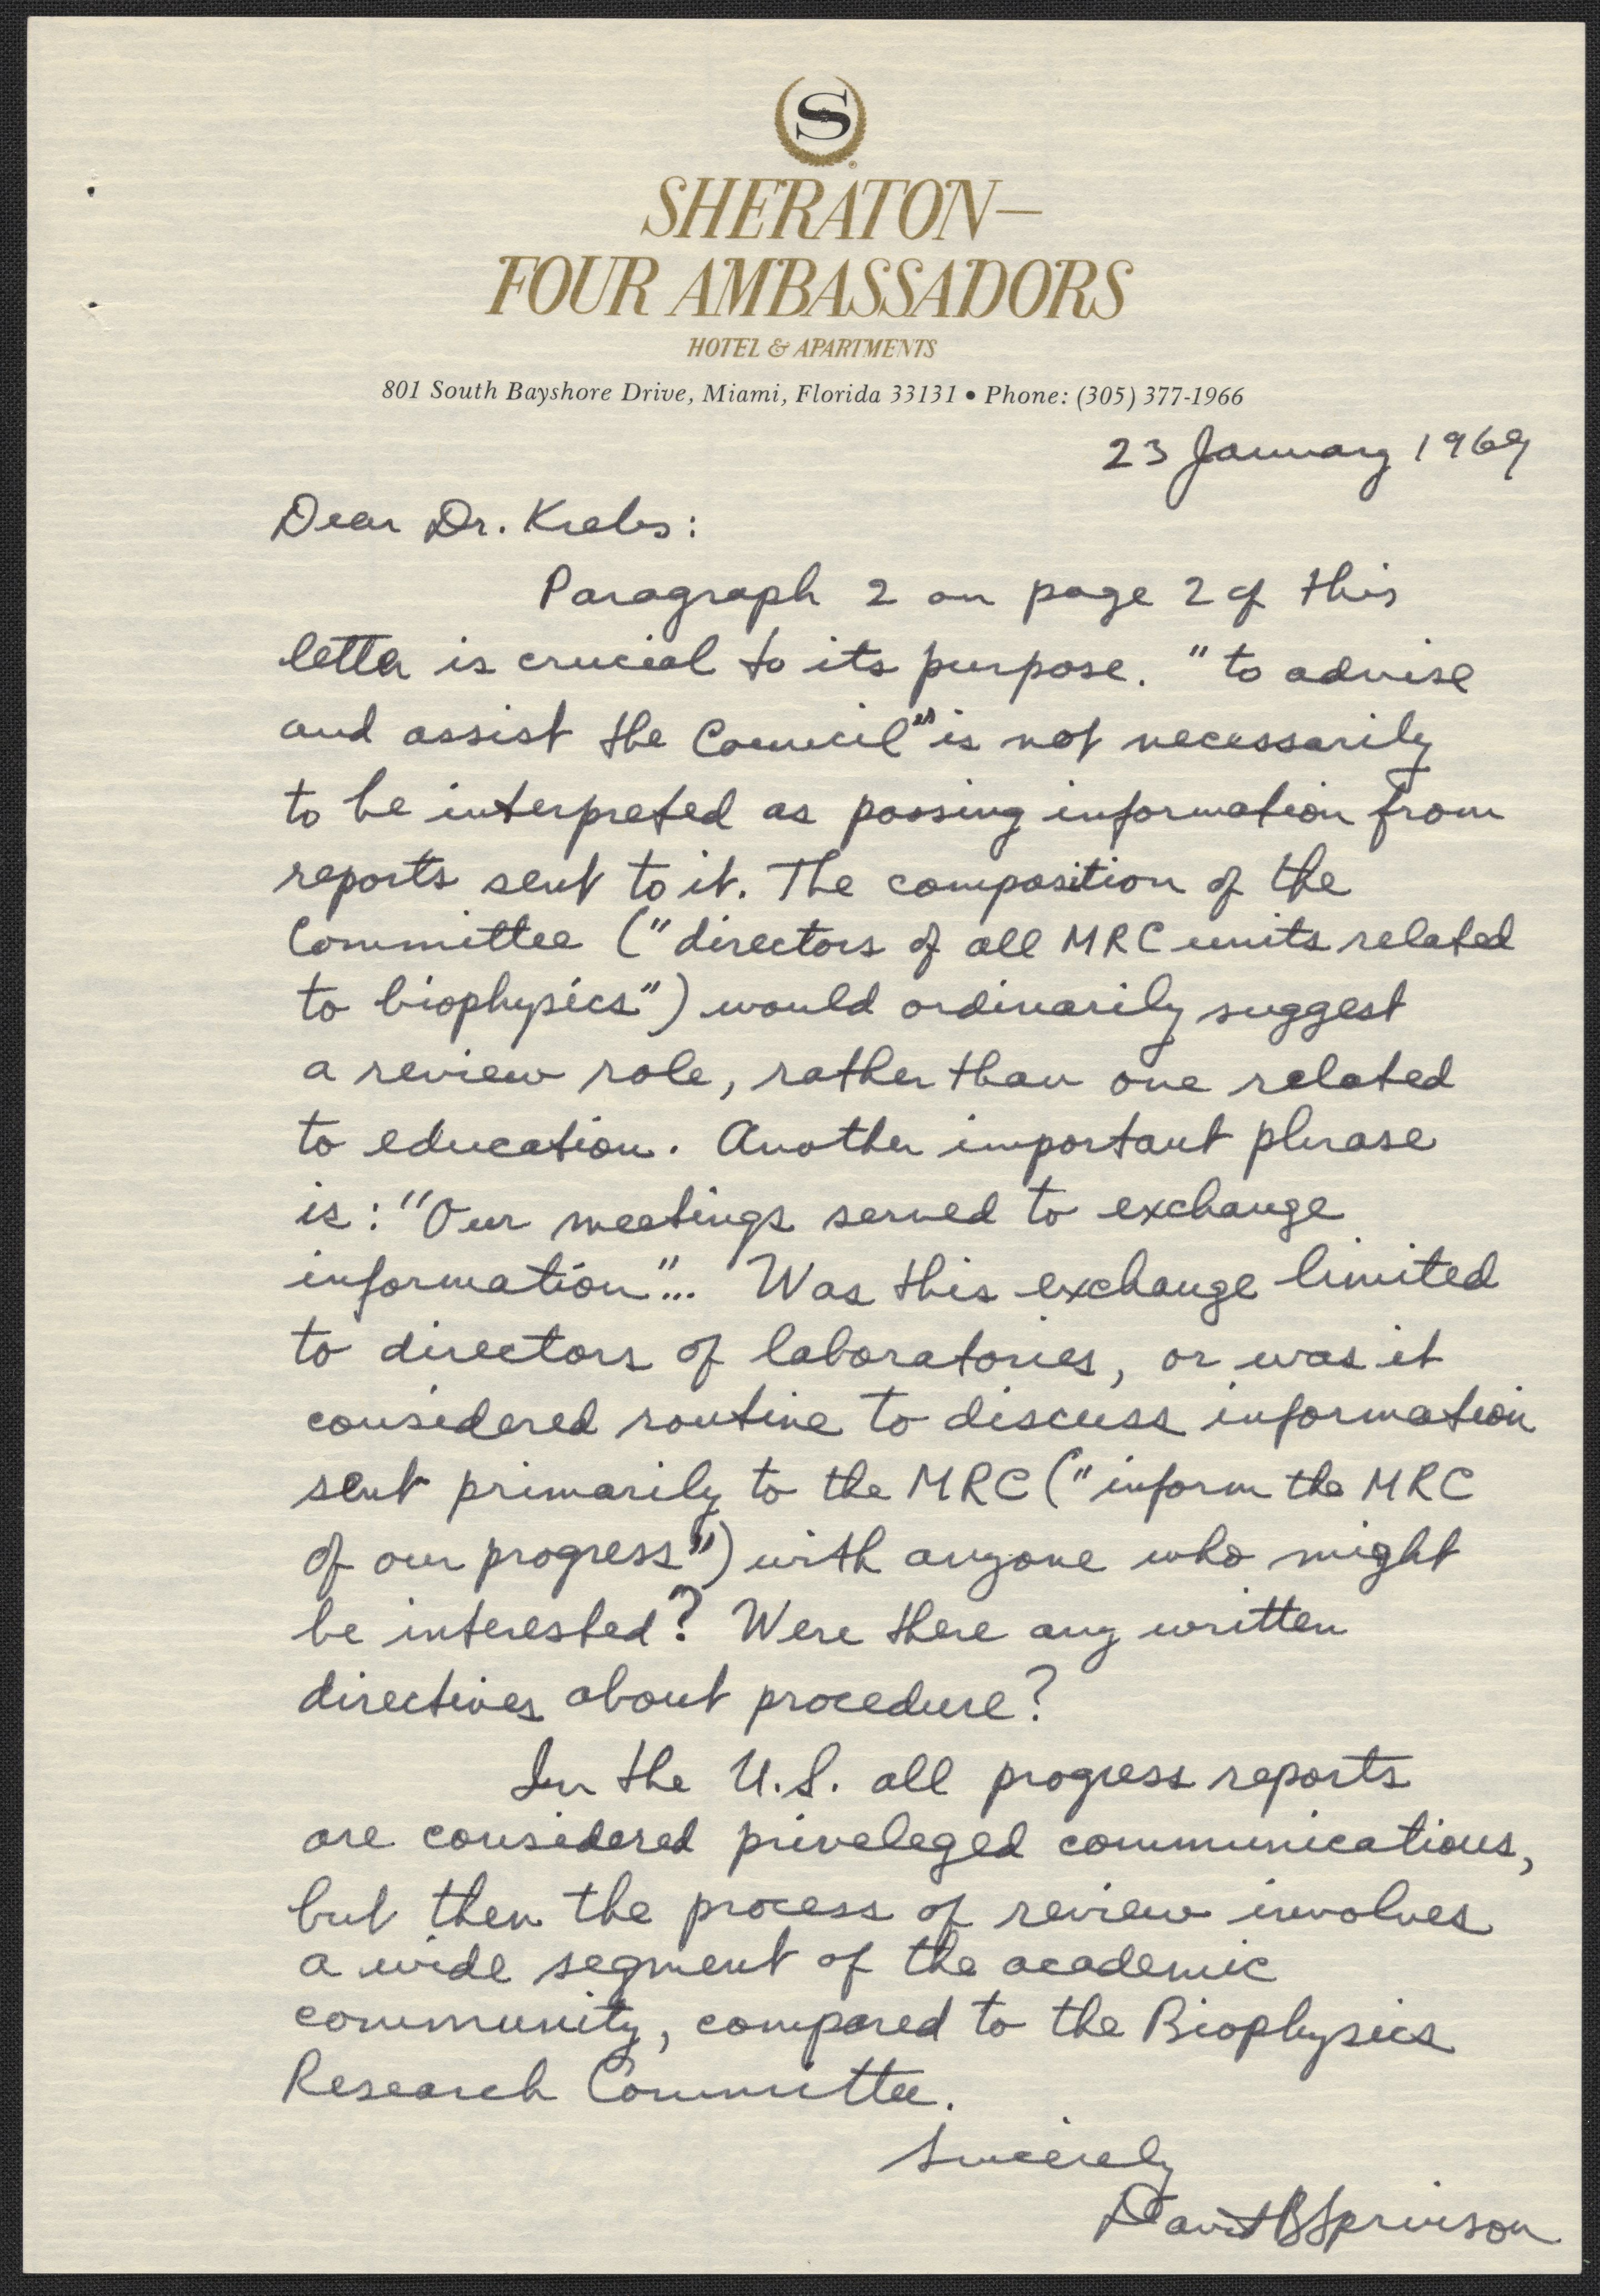 S
SHERATON—
FOUR AMBASSADORS
HOTEL & APARTMENTS
801 South Bayshore Drive, Miami, Florida 33131 • Phone: (305) 377-1966
23 January 1969
Dear Dr. Krebs:
Paragraph 2 on page 2 of this
letter is crucial to its purpose. "to advise
and assist the Council" is not necessarily
to be interpreted as passing information from
reports sent to it. The composition of the
Committee ("directors of all MRC units related
to biophysics") would ordinarily suggest
a review role, rather than one related
to education. Another important phrase
is: "Our meetings served to exchange
information"... Was this exchange limited
to directors of laboratories, or was it
considered routine to discuss information
sent primarily to the MRC ("inform the MRC
of our progress") with anyone who might
be interested? Were there any written
directives about procedure?
In the U.S. all progress reports
are considered priveleged communications,
but then the process of review involves
a wide segment of the academic
community, compared to the Biophysics
Research Committee.
Sincerely
David B Sprinson